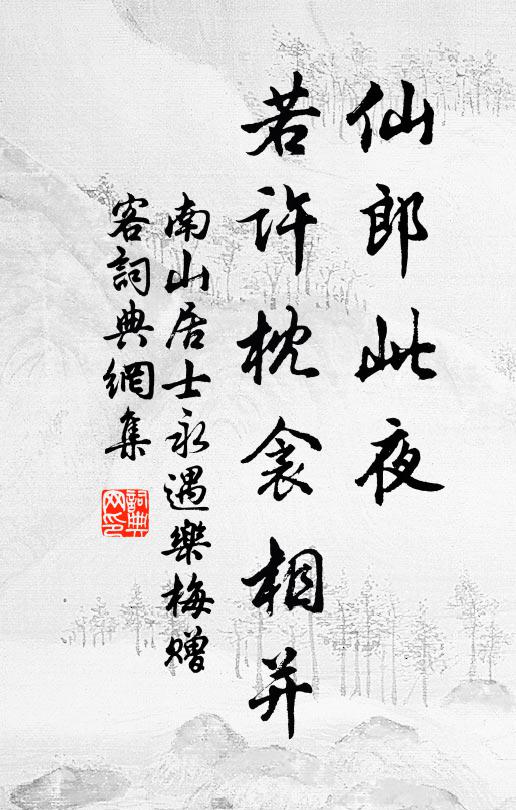 仙郎此夜
若许枕衾相并
南山居士永遇樂梅赠
客詞典網集
詞典
网印